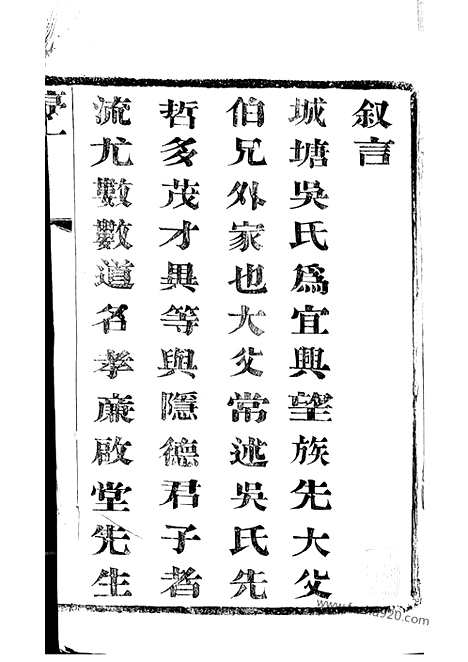 叙言
城塘吳氏爲宜興望族先大父
伯兄外家也大父常述吳氏先
哲多茂才異等與隱德君子者
流尤數數道名孝廉啟堂先生